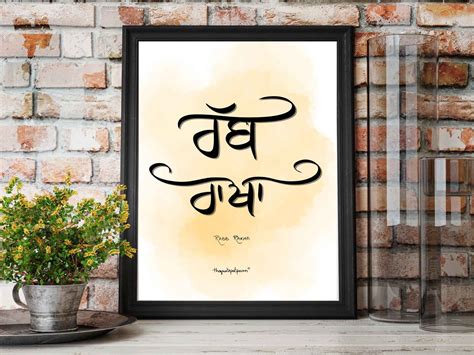 ਰੱਬ
ਰਾਖਾ
Rabb Rakha